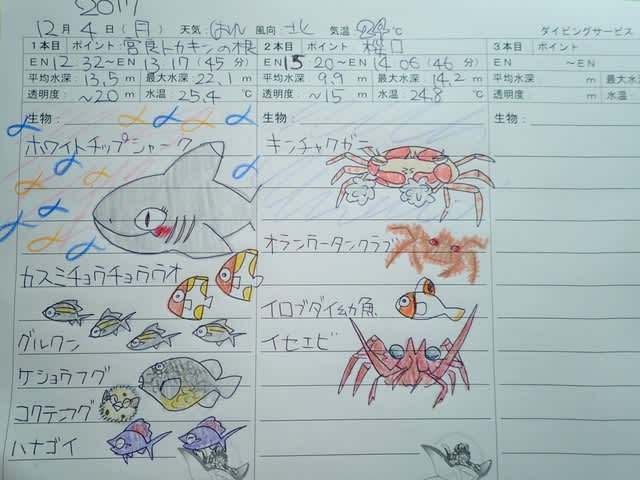 2017
12月4日(月) 天気:はれ 風向:北 気温:24℃ ダイビングサービス
1本目 ポイント 宮良トカキンの根
EN 12:32〜EN 13:17 (45分)
平均水深:13.5m 最大水深 22.1m
透明度:〜20m 水温:25.4℃
生物:
ホワイトチップシャーク
カスミチョウチョウウオ
グルクン
ケショウフグ
コクテンフグ
ハナゴイ
2本目 ポイント
EN 13:20〜EN 14:06 (46分)
平均水深:9.9m 最大水深 14.2m
透明度:〜15m 水温:24.8℃
生物:
キンチャクガニ
オランウータンクラブ
イロブダイ幼魚
イセエビ
3本目 ポイント
EN 〜EN
平均水深: m 最大水深
透明度: m 水温:
生物: